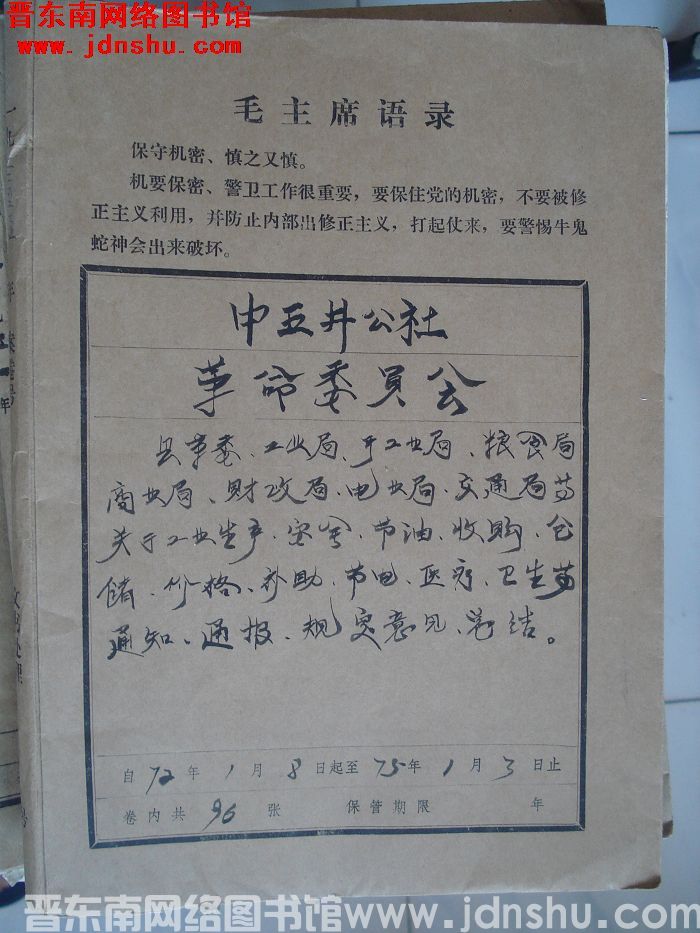 晋东南网络图书馆
www.jdnshu.com
毛主席语录
保守机密、慎之又慎。
机要保密、警卫工作很重要，要保住党的机密，不要被修
正主义利用，并防止内部出修正主义，打起仗来，要警惕牛鬼
蛇神会出来破坏。
中五井公社
革命委员会
县革委、工业局、手工业局、粮食局
商业局、财政局、电业局、交通局等
关于工业生产、安全、节油、收购、仓
储、价格、补助、节电、医疗、卫生等
通知、通报、规定意见、总结。
自72年1月8日起至75年1月3日止
卷内共96张 保管期限 年
晋东南网络图书馆www.jdnshu.com